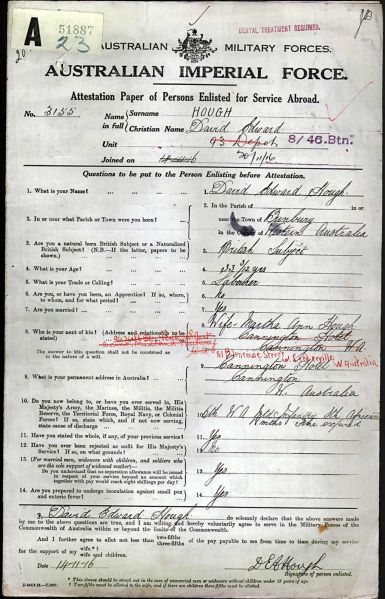 A
51887
23
20
DENTAL TREATMENT REQUIRED.
AUSTRALIAN MILITARY FORCES.
AUSTRALIAN IMPERIAL FORCE.
Attestation Paper of Persons Enlisted for Service Abroad.
No. 3155
Name in full
Surname HOUGH
Christian Name David Edward
Unit 93 Depot 8/46.Btn.
Joined on 20/11/16
Questions to be put to the Person Enlisting before Attestation.
1. What is your Name? 1. David Edward Hough
2. In or near what Parish or Town were you born? 2. In the Parish of
near the Town of Bunbury
in the County of Western Australia
3. Are you a natural born British Subject or a Naturalized British Subject? (N.B.—If the latter, papers to be shown.) 3. British Subject
4. What is your Age? 4. 33
5. What is your Trade or Calling? 5. Labourer
6. Are you, or have you been, an Apprentice? If so, where, to whom, and for what period? 6. No
7. Are you married? 7. Yes
8. Who is your next of kin? (Address and relationship to be stated) 8. Wife Martha Ann Hough
Cannington Hotel
Cannington W A
W. Australia
The answer to this question shall not be construed as in the nature of a will.
9. What is your permanent address in Australia? 9. Cannington Hotel
Cannington
W Australia
10. Do you now belong to, or have you ever served in, His Majesty's Army, the Marines, the Militia, the Militia Reserve, the Territorial Force, Royal Navy, or Colonial Forces? If so, state which, and if not now serving, state cause of discharge 10. 6th W A Infantry Sth Africa
time expired
11. Have you stated the whole, if any, of your previous service? 11. Yes
12. Have you ever been rejected as unfit for His Majesty's Service? If so, on what grounds? 12. No
13. (For married men, widowers with children, and soldiers who are the sole support of widowed mother)—
Do you understand that no separation allowance will be issued in respect of your service beyond an amount which together with pay would reach eight shillings per day? 13. Yes
14. Are you prepared to undergo inoculation against small pox and enteric fever? 14. Yes
I, David Edward Hough do solemnly declare that the above answers made by me to the above questions are true, and I am willing and hereby voluntarily agree to serve in the Military Forces of the Commonwealth of Australia within or beyond the limits of the Commonwealth.
And I further agree to allot not less than two-fifths three-fifths of the pay payable to me from time to time during my service for the support of my wife.
wife and children.
Date 14-11-16
D E Hough
Signature of person enlisted.
* This clause should be struck out in the case of unmarried men or widowers without children under 18 years of age.
† Two-fifths must be allotted to the wife, and if there are children three-fifths must be allotted.